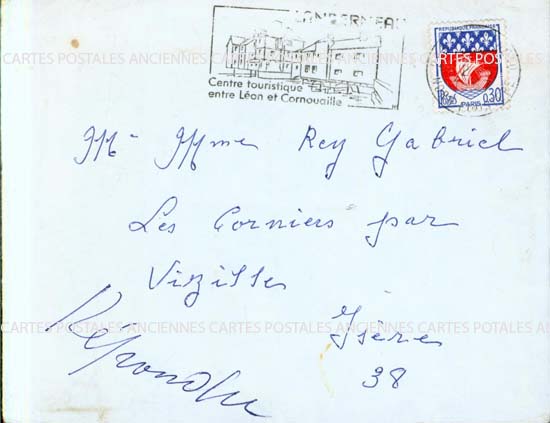 LANDERNEAU
REPUBLIQUE FRANÇAISE
Centre touristique
entre Léon et Cornouaille
0,30
PARIS
CARTES POSTALES ANCIENNES CARTES POSTALES ANCIENNES CARTES POSTALES ANCIENNES
Mr Mme Rey Gabriel
Les Corniers par
Vizille
CARTES POSTALES ANCIENNES CARTES POSTALES ANCIENNES CARTES POTALES ANCIENNES
Isère
38
Répondu